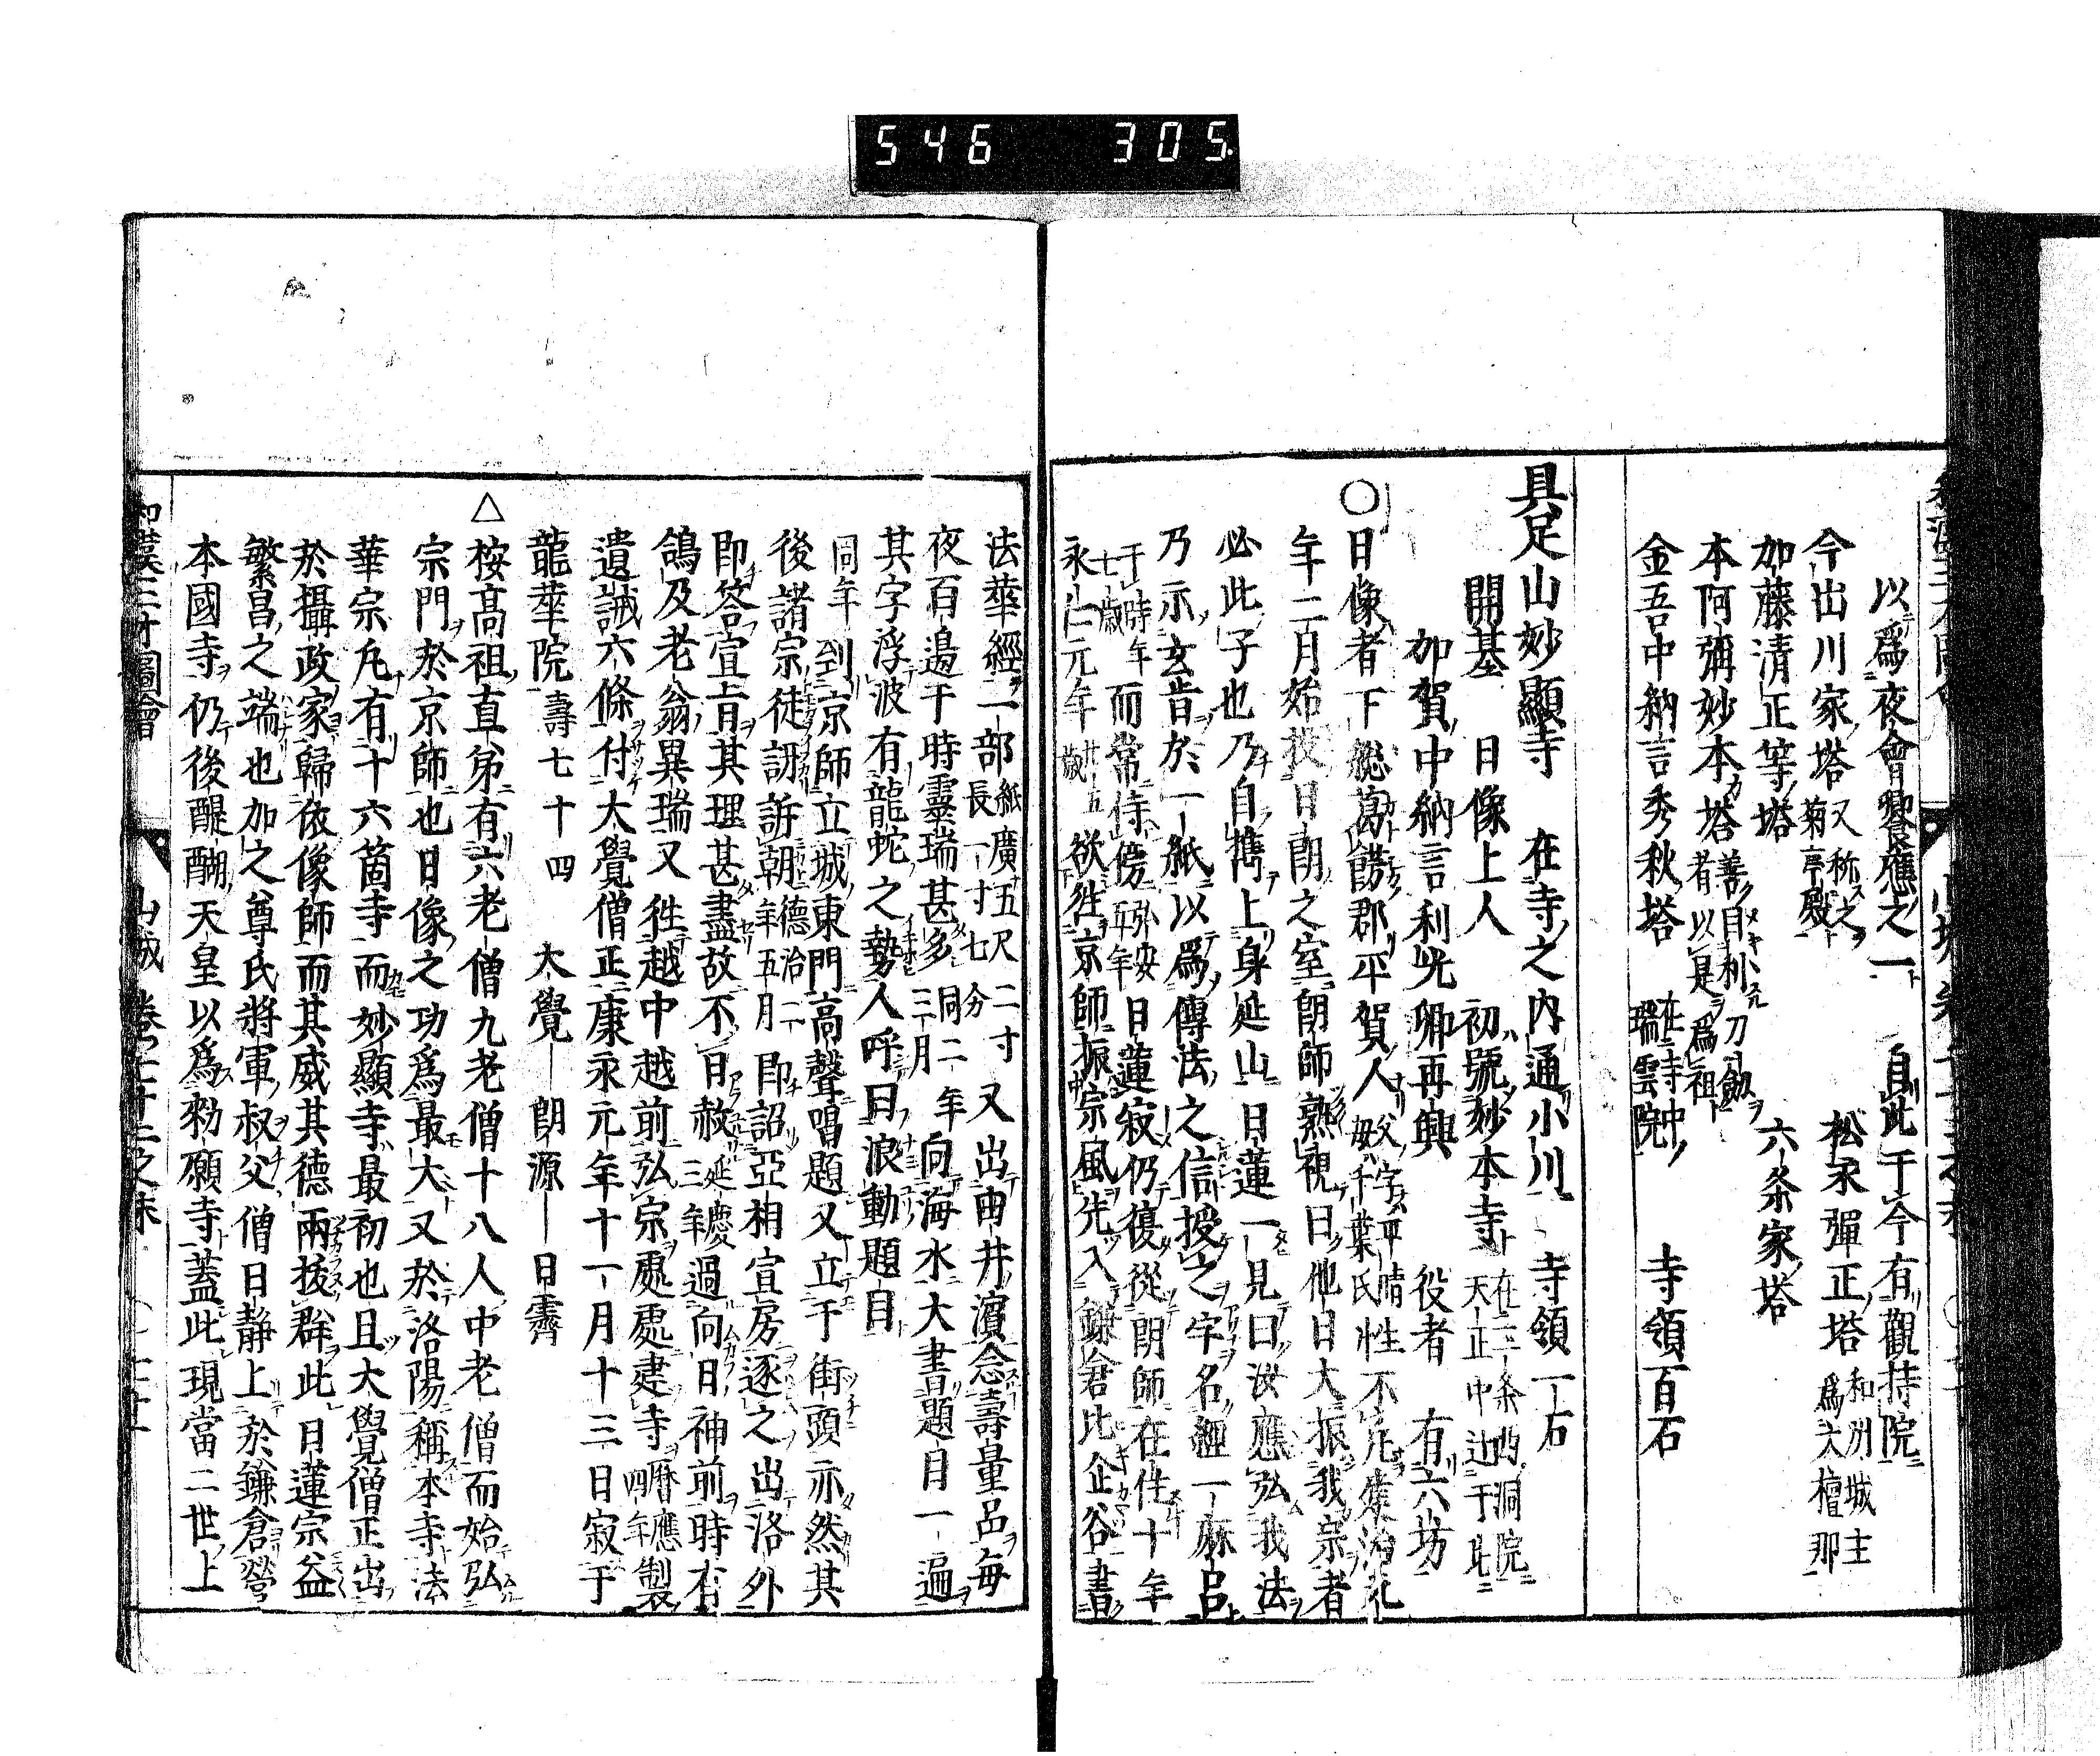 546 305
以爲夜會饗應之一 自此于今有觀持院
今出川家塔 又称之菊亭殿 松永彈正塔 和州城主爲大檀那
加藤清正等塔 六条家塔
本阿彌妙本塔 善目利刀劔者以是爲祖
金吾中納言秀秋塔 在寺中瑞雲院 寺領百石
具足山妙顯寺 在寺之内通小川 寺領一石
開基 日像上人 初號妙本寺 在三条西洞院天正中辻于此
加賀中納言利光卿再興 役者 有六坊
○日像者下総葛餝郡平賀人 父字平晴母千葉氏 性不凡
年二月始投日朗之室朗師熟視曰他日大振我宗者
必此子也乃自携上身延山日蓮一見曰汝應弘我法
乃示玄旨於一紙以爲傳法之信授之字名經一麻呂
于時年七歳 而常侍傍 弘安五年 日蓮寂仍復從朗師在住十年
永仁元年 廿五歳 欲徃京師振宗風先入鎌倉比企谷書
法華經一部 紙廣五尺二寸長一寸七分 又出由井濱念壽量品毎
夜百邊于時靈瑞甚多 同二年三月 向海水大書題目一遍
其字浮波有龍蛇之勢人呼曰浪動題目
同年 到京師立城東門高聲唱題又立于街頭亦然其
後諸宗徒訝訴朝 德治二年五月 即詔亞相宣房逐之出洛外
即答宣旨其理甚盡故不日赦 延慶三年 過向日神前時有
鴿及老翁異瑞又徃越中越前弘宗處處建寺 暦應四年 製
遺誡六條付大覺僧正康永元年十一月十三日寂于
龍華院 壽七十四 大覺―朗源―日霽
△桉高祖直弟有六老僧九老僧十八人中老僧而始弘
宗門於京師也日像之功爲最大又於洛陽稱本寺法
華宗凡有十六箇寺而妙顯寺最初也且大覺僧正出
於攝政家歸依像師而其威其德兩拔群此日蓮宗益
繁昌之端也加之尊氏將軍叔父僧日静上於鎌倉營
本國寺仍後醍醐天皇以爲勅願寺蓋此現當二世上
和漢三才圖會 山城 卷七十二之末